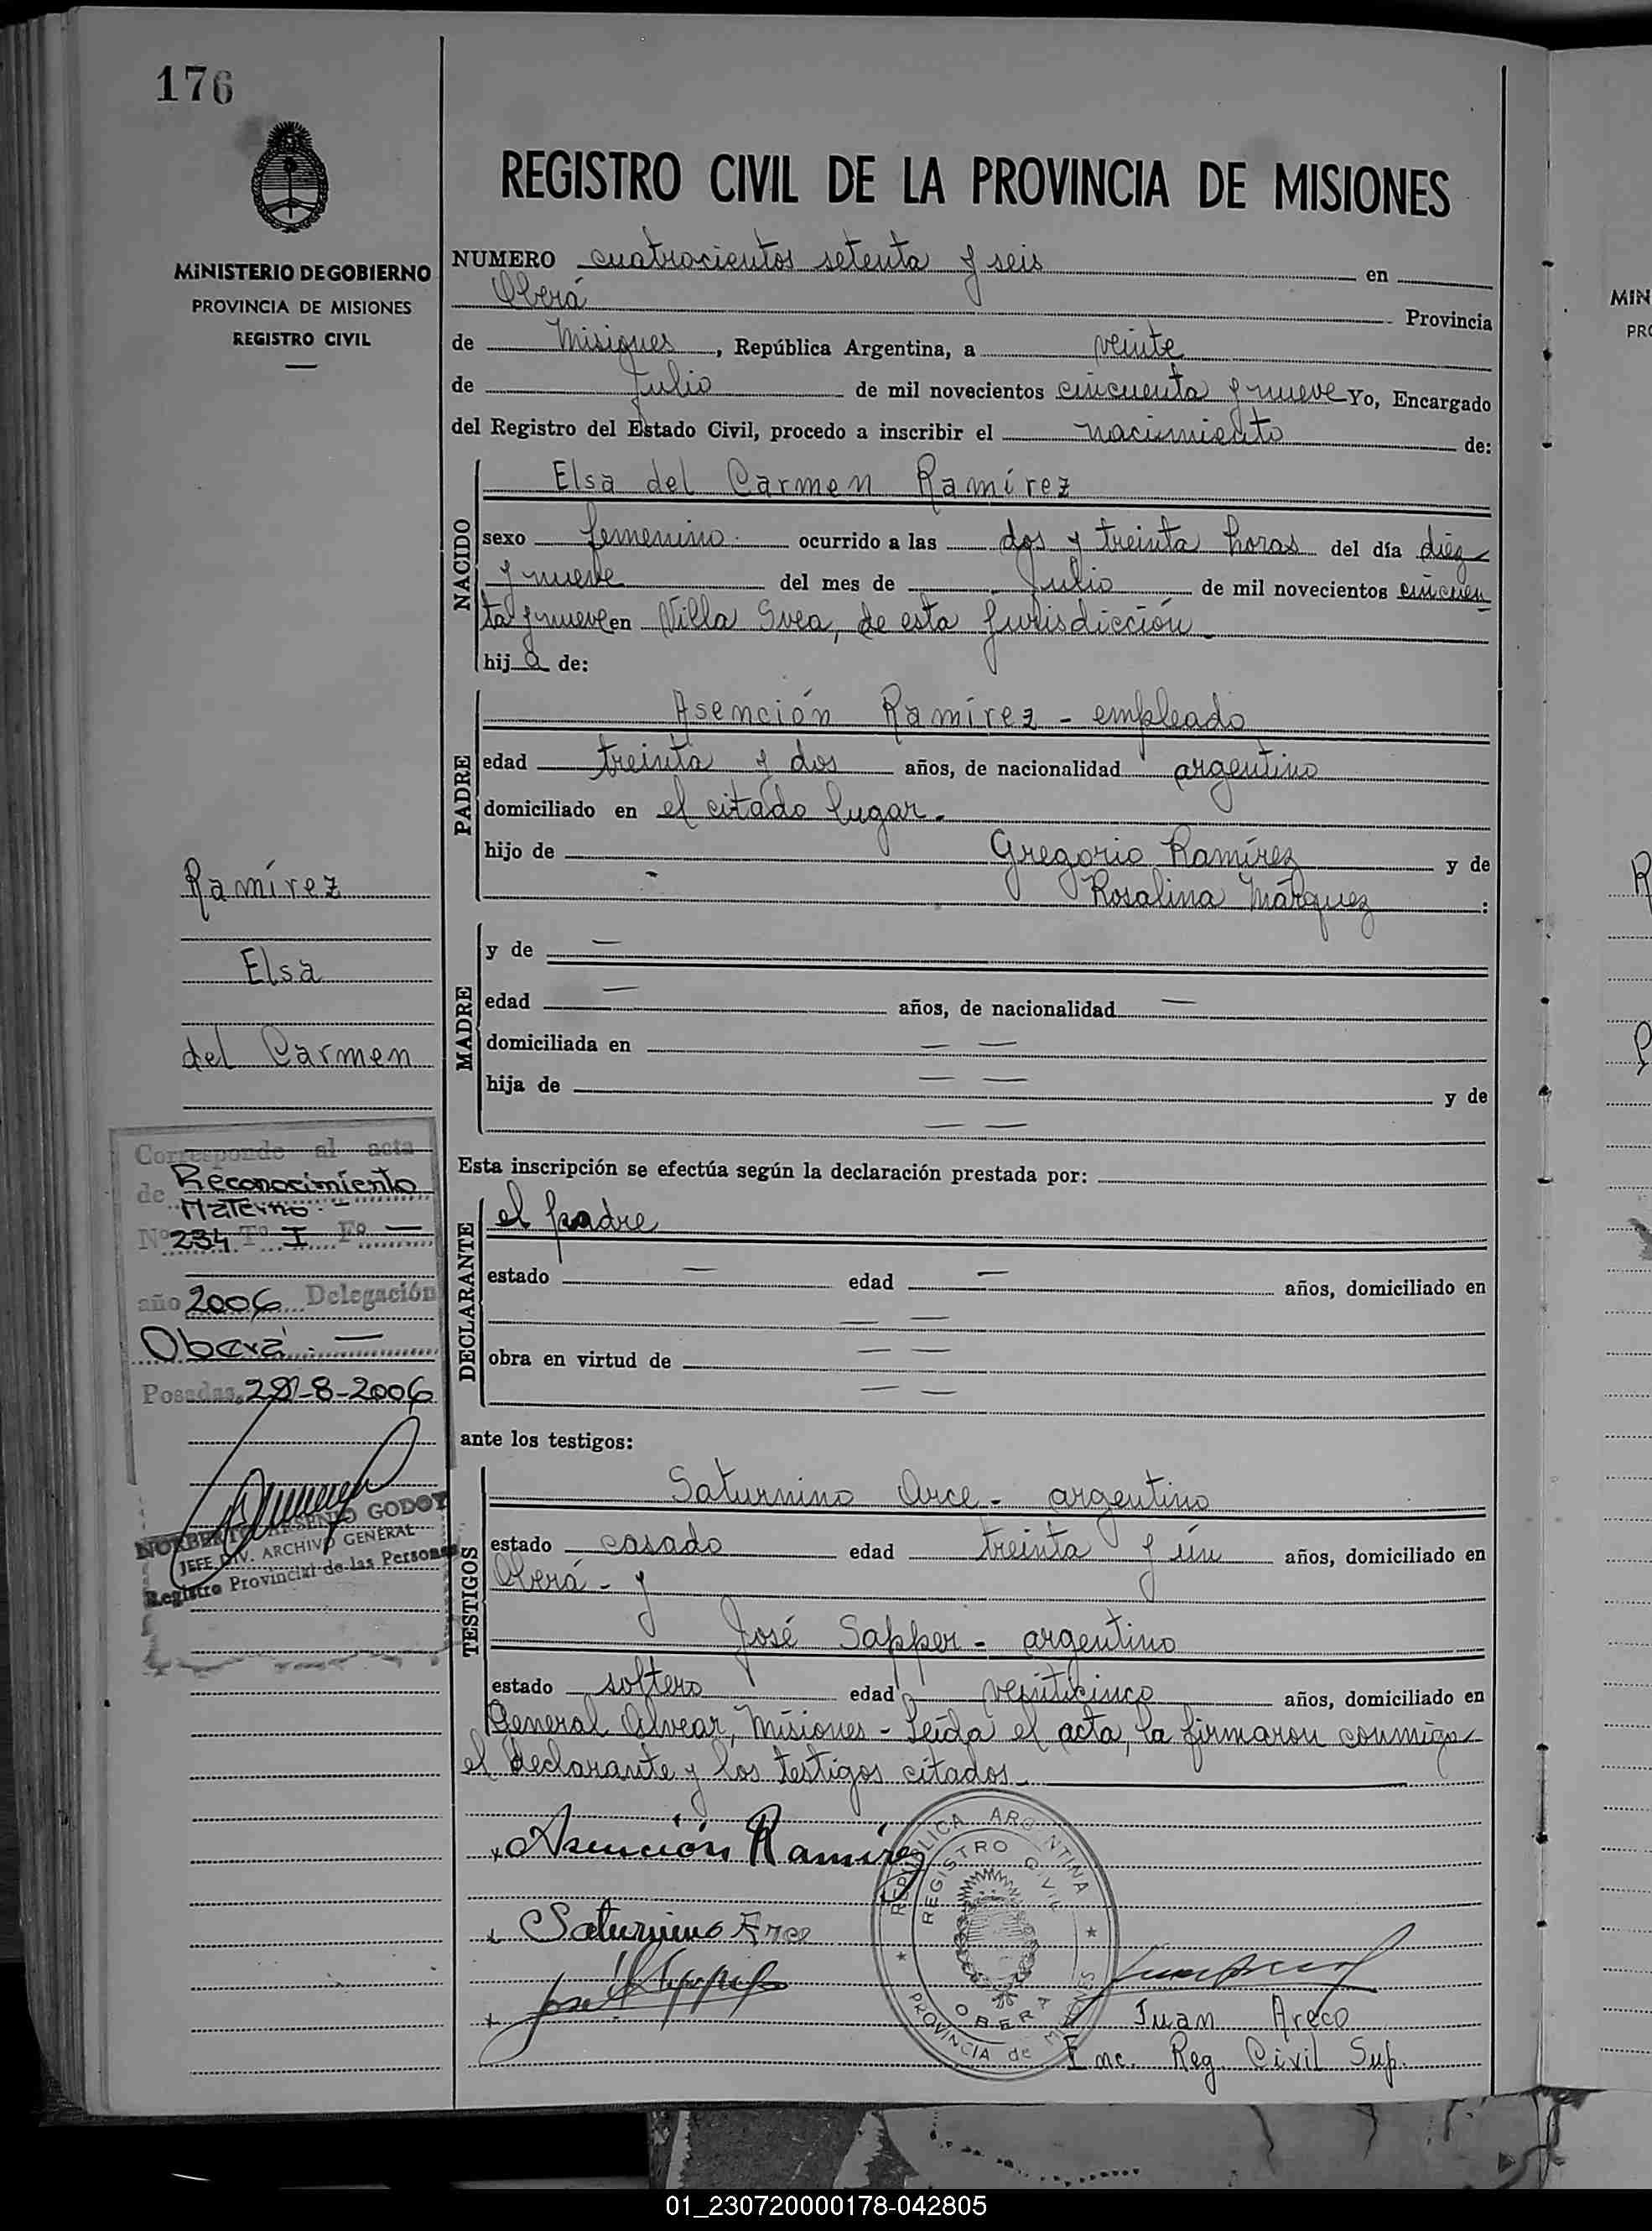 176
REGISTRO CIVIL DE LA PROVINCIA DE MISIONES
MINISTERIO DE GOBIERNO
PROVINCIA DE MISIONES
REGISTRO CIVIL
NUMERO cuatrocientos setenta y seis en
Oberá Provincia
de Misiones, República Argentina, a veinte
de Julio de mil novecientos cincuenta y nueve Yo, Encargado
del Registro del Estado Civil, procedo a inscribir el nacimiento de:
NACIDO
Elsa del Carmen Ramírez
sexo femenino. ocurrido a las dos y treinta horas del día diez
y nueve del mes de Julio de mil novecientos cincuen
ta y nueve en Villa Svea, de esta Jurisdicción
hija de:
PADRE
Asención Ramírez - empleado
edad treinta y dos años, de nacionalidad argentino
domiciliado en el citado lugar.
hijo de Gregorio Ramírez y de
Rosalina Márquez :
MADRE
y de —
edad — años, de nacionalidad —
domiciliada en — —
hija de — — y de
— —
Esta inscripción se efectúa según la declaración prestada por:
DECLARANTE
el padre
estado — edad — años, domiciliado en
— —
obra en virtud de — —
— —
ante los testigos:
TESTIGOS
Saturnino Arce - argentino
estado casado edad treinta y un años, domiciliado en
Oberá - y
José Sapper - argentino
estado soltero edad veinticinco años, domiciliado en
General Alvear, Misiones - Leída el acta, la firmaron conmigo
el declarante y los testigos citados.
x Asención Ramírez
Saturnino Arce
Juan Areco
Enc. Reg. Civil Sup.
REPUBLICA ARGENTINA
REGISTRO CIVIL
OBERA
PROVINCIA de MISIONES
Ramírez
Elsa
del Carmen
Corresponde al acta
de Reconocimiento
Materno. -
Nº 234 Tº I Fº —
año 2006 Delegación
Oberá. —
Posadas, 28-8-2006
NORBERTO ARSENIO GODOY
JEFE DIV. ARCHIVO GENERAL
Registro Provincial de las Personas
MIN
PRO
01_230720000178-042805